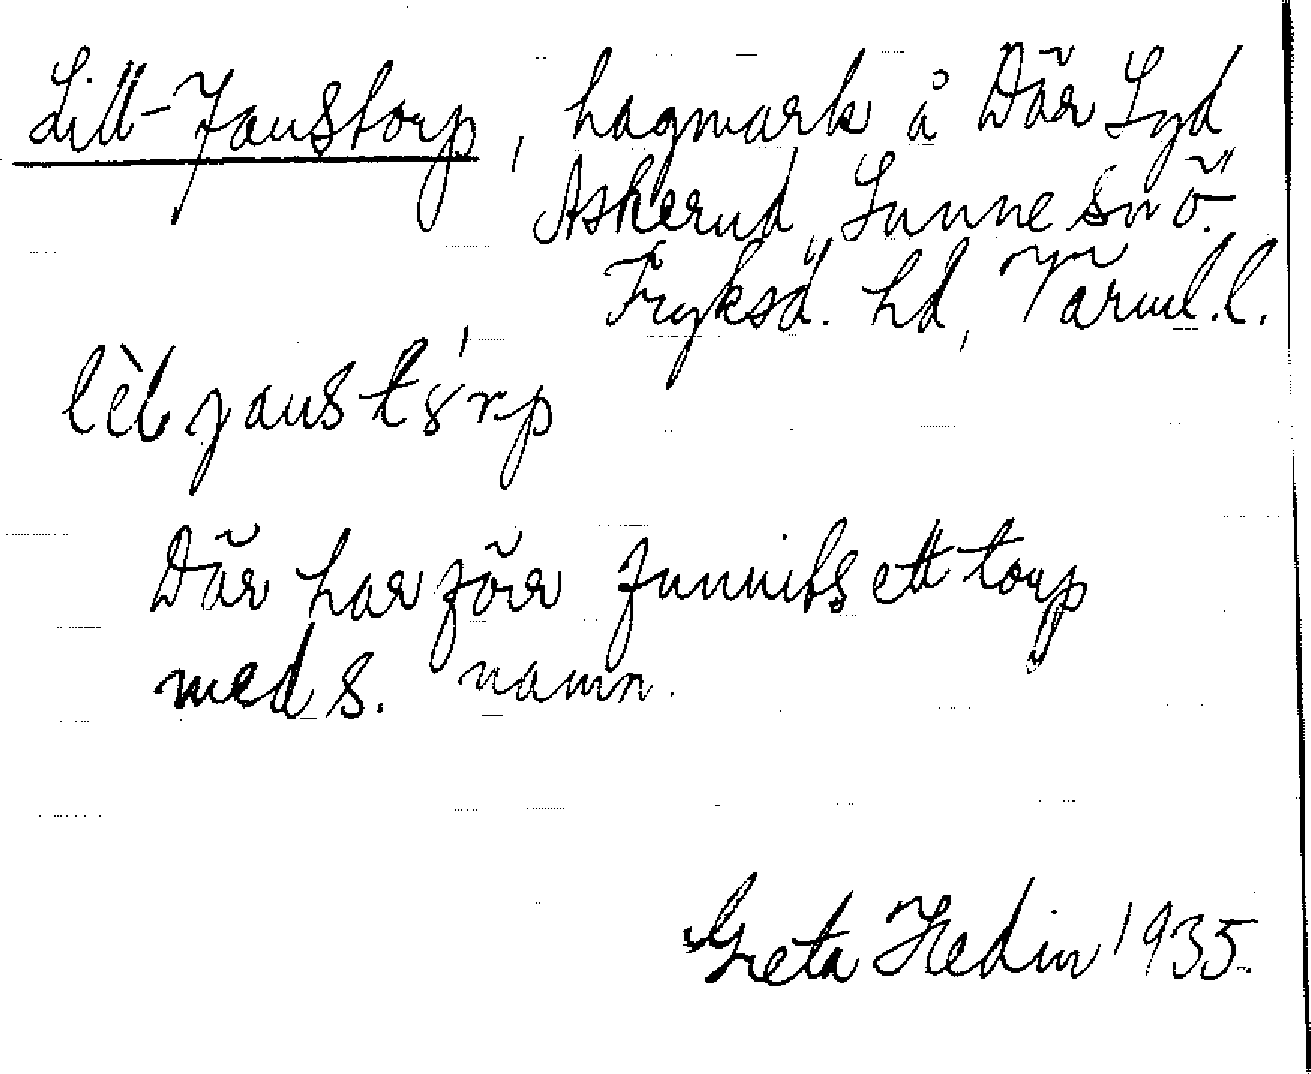 Litt-Janstorp, hagmark å Där Syd
Askerud, Sunne sn ö.
Fryksd. hd, Värml.l.
lèt janstó̤rp
Där har förr funnits ett torp
med s. namn.
Greta Hedin 1935.